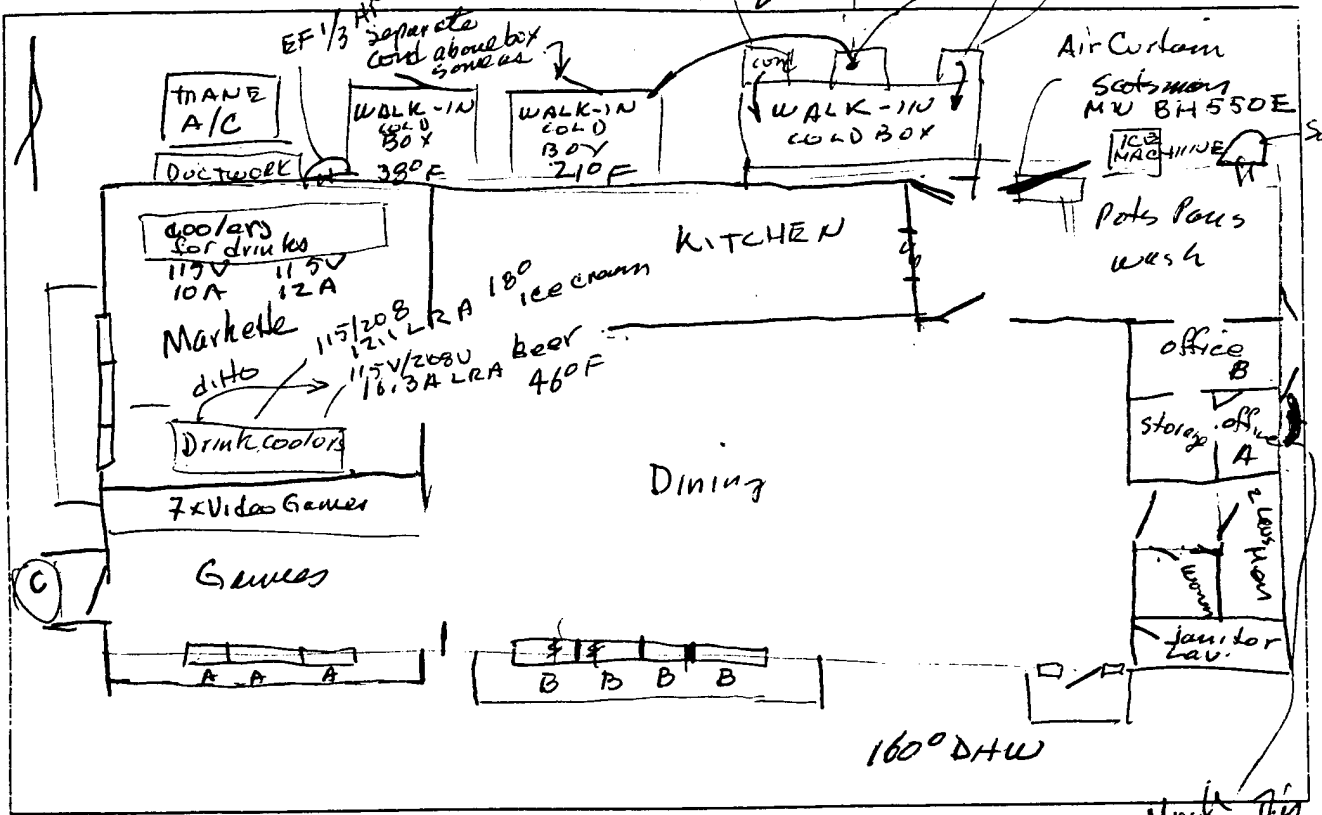 EF 1/3 HP
separate
cond above box
same as
TRANE
A/C
DUCTWORK
WALK-IN
COLD
BOX
38°F
WALK-IN
COLD
BOX
21°F
cond
WALK-IN
COLD BOX
Air Curtain
Scotsman
BH550E
ICE
MACHINE
Pots Pans
wash
KITCHEN
coolers
for drinks
115V 115V
10A 12A
115/208 18°
12.1 LRA ice cream
ditto
115V/208V Beer
16.3A LRA 46°F
Drink coolers
7xVideo Games
Games
C
Dining
office
B
storage
office
A
janitor
Lav.
A A A
B B B B
160° DHW